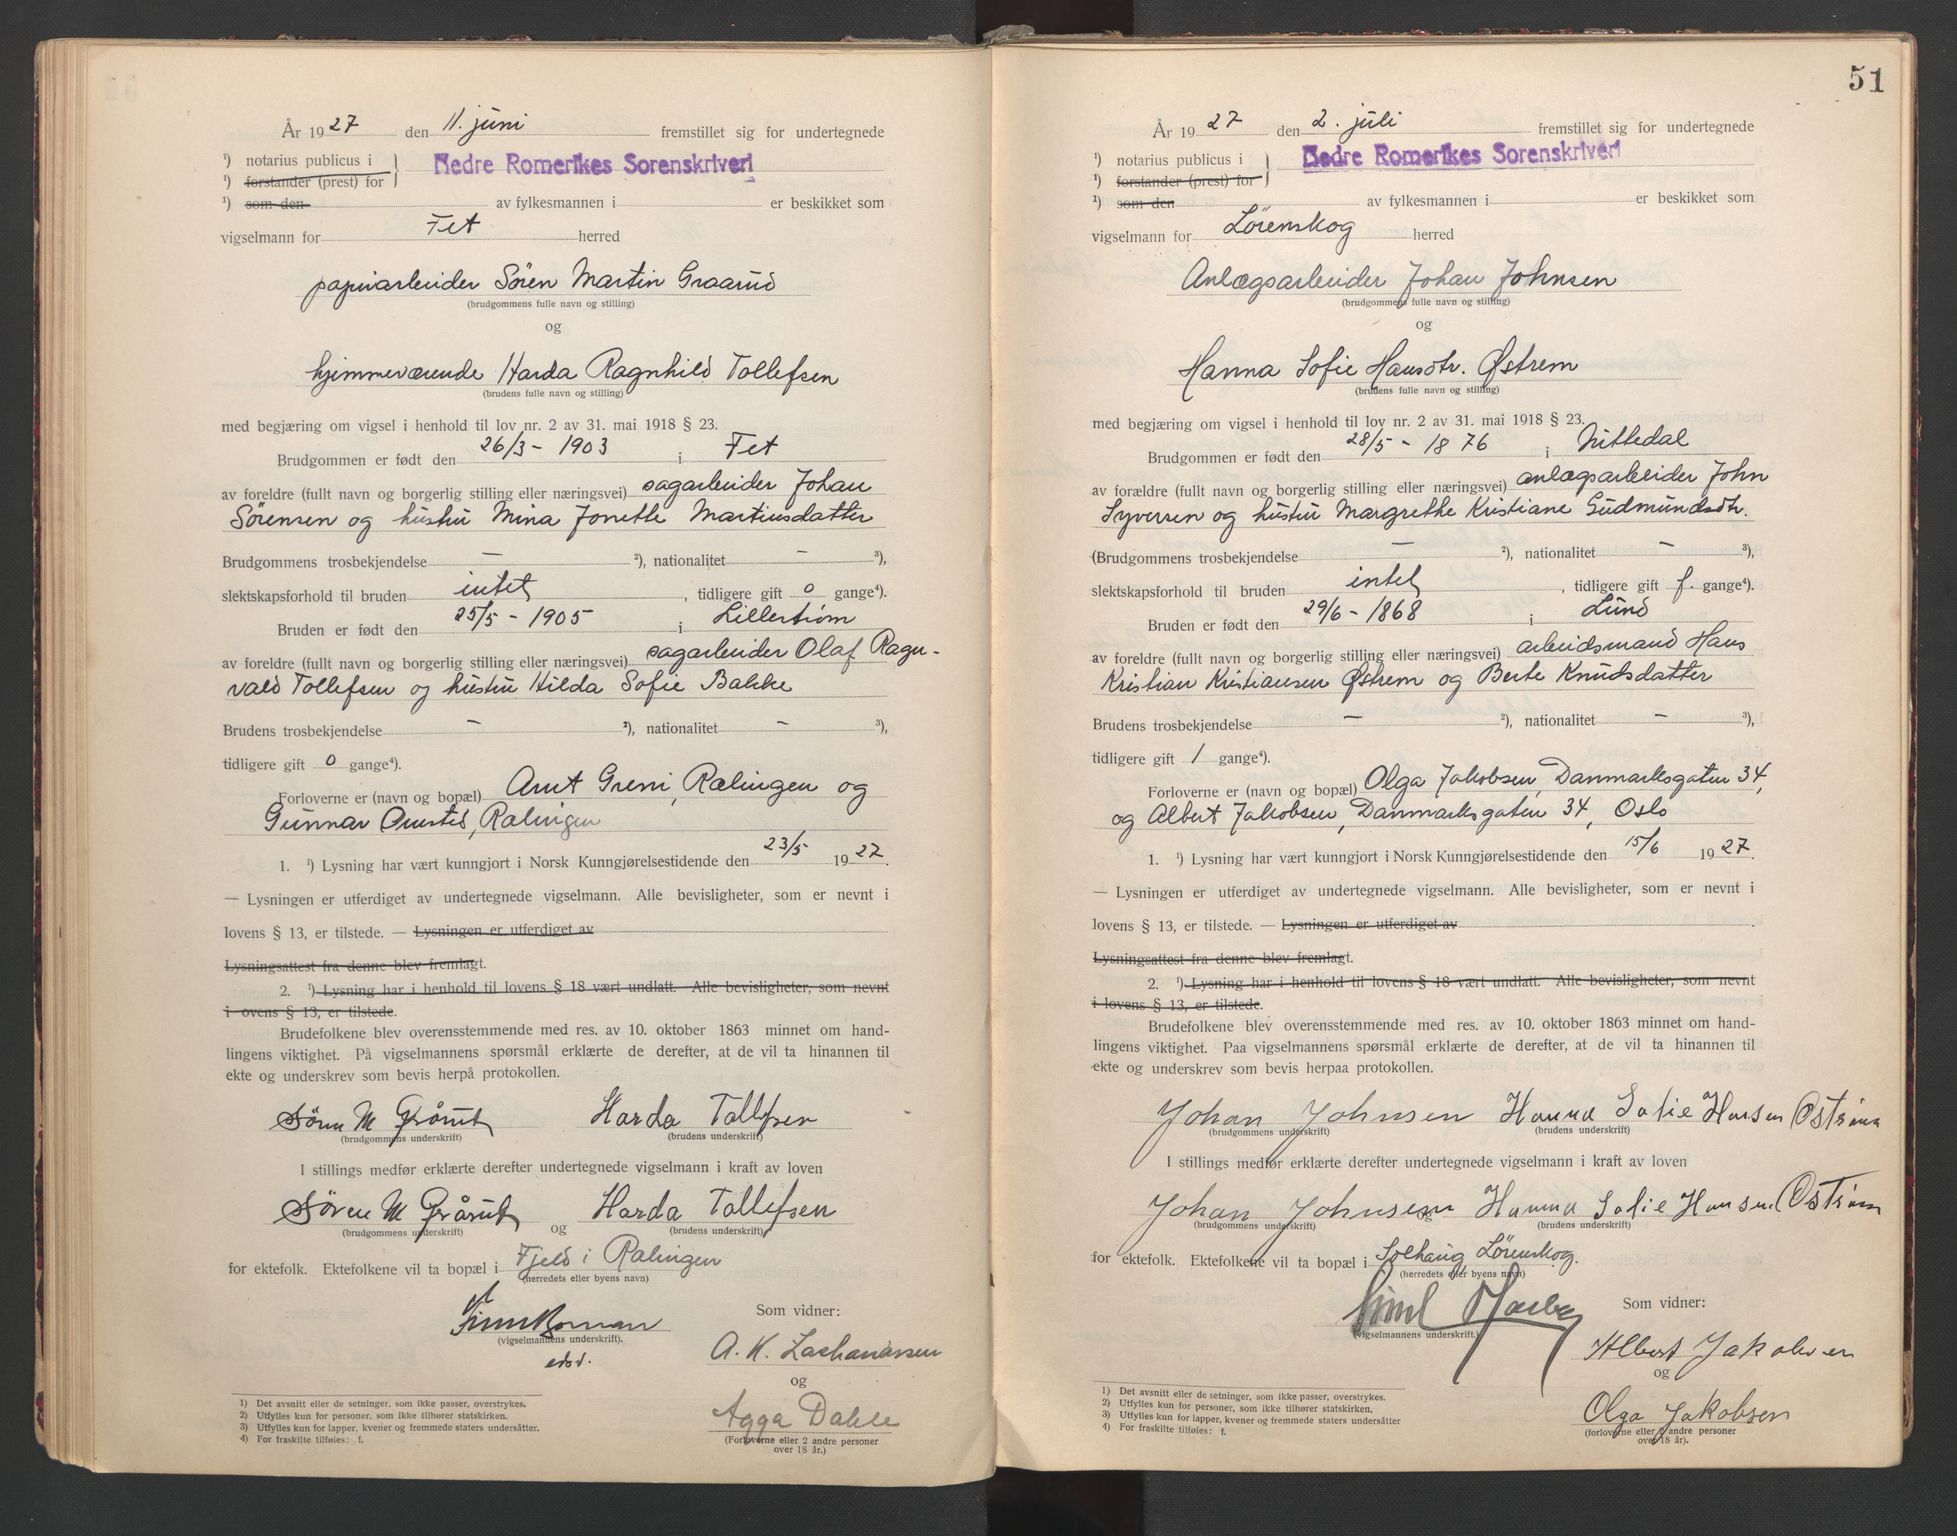 År 1927 den 11. juni fremstillet sig for undertegnede
¹) notarius publicus i
Nedre Romerikes Sorenskriveri
¹) forstander (prest) for
¹) som den av fylkesmannen i er beskikket som
vigselmann for Fet herred
papirarbeider Sören Martin Graarud
(brudgommens fulle navn og stilling)
og
hjemmeværende Harda Ragnhild Tollefsen
(brudens fulle navn og stilling)
med begjæring om vigsel i henhold til lov nr. 2 av 31. mai 1918 § 23.
Brudgommen er født den 26/3 - 1903 i Fet
av foreldre (fullt navn og borgerlig stilling eller næringsvei) sagarbeider Johan
Sørensen og hustru Mina Jonette Martinsdatter
Brudgommens trosbekjendelse — ²), nationalitet — ³),
slektskapsforhold til bruden intet, tidligere gift 0 gange⁴).
Bruden er født den 25/5 - 1905 i Lillestrøm
av foreldre (fullt navn og borgerlig stilling eller næringsvei) sagarbeider Olaf Ragn-
vald Tollefsen og hustru Hilda Sofie Bakke
Brudens trosbekjendelse — ²), nationalitet — ³),
tidligere gift 0 gange⁴).
Forloverne er (navn og bopæl) Arnt Greni, Rælingen og
Gunnar Rælingen
1. ¹) Lysning har vært kunngjort i Norsk Kunngjørelsestidende den 23/5 1927.
— Lysningen er utferdiget av undertegnede vigselmann. Alle bevisligheter, som er nevnt i
lovens § 13, er tilstede. — Lysningen er utferdiget av
Lysningsattest fra denne blev fremlagt.
2. ¹) Lysning har i henhold til lovens § 18 vært undlatt. Alle bevisligheter, som nevnt
i ovens § 13, er tilstede.
Brudefolkene blev overensstemmende med res. av 10. oktober 1863 minnet om hand-
lingens viktighet. På vigselmannens spørsmål erklærte de derefter, at de vil ta hinannen til
ekte og underskrev som bevis herpå protokollen.
Sören M Grårud Harda Tollefsen
(brudgommens underskrift) (brudens underskrift)
I stillings medfør erklærte derefter undertegnede vigselmann i kraft av loven
Sören M Grårud og Harda Tollefsen
(brudgommens underskrift) (brudens underskrift)
for ektefolk. Ektefolkene vil ta bopæl i Fjeld i Rælingen
(herredets eller byens navn)
Som vidner:
(vigselmannens underskrift).
edsv.
A. K. Zachariassen
og
Agga Dahle
(Forloverne eller 2 andre personer
over 18 år.)
1) Det avsnitt eller de setninger, som ikke passer, overstrykes.
2) Utfylles kun for personer, som ikke tilhører statskirken.
3) Utfylles kun for lapper, kvener og fremmede staters undersåtter.
4) For fraskilte tilføies: f.
51
År 1927 den 2. juli fremstillet sig for undertegnede
¹) notarius publicus i
Nedre Romerikes Sorenskriveri
¹) forstander (prest) for
¹) som den av fylkesmannen i er beskikket som
vigselmann for Lørenskog herred
Anlægsarbeider Johan Johnsen
(brudgommens fulle navn og stilling)
og
Hanna Sofie Hansdtr. Østrem
(brudens fulle navn og stilling)
med begjæring om vigsel i henhold til lov nr. 2 av 31. mai 1918 § 23.
Brudgommen er født den 28/5 - 1876 i Nittedal
av forældre (fullt navn og borgerlig stilling eller næringsvei) anlægsarbeider John
Syversen og hustru Margrethe Kristiane Gudmundsdtr.
(Brudgommens trosbekjendelse — ²), nationalitet — ³),
slektskapsforhold til bruden intet, tidligere gift f. gange⁴).
Bruden er født den 29/6 - 1868 i Lund
av foreldre (fullt navn og borgerlig stilling eller næringsvei) arbeidsmand Hans
Kristian Kristiansen Østrem og Berte Knudsdatter
Brudens trosbekjendelse — ²), nationalitet — ³),
tidligere gift 1 gange⁴).
Forloverne er (navn og bopæl) Olga Jakobsen, Danmarksgaten 34,
og Albert Jakobsen, Danmarksgaten 34, Oslo
1. ¹) Lysning har vært kunngjort i Norsk Kunngjørelsestidende den 15/6 1927.
— Lysningen er utferdiget av undertegnede vigselmann. Alle bevisligheter, som er nevnt i
lovens § 13, er tilstede. — Lysningen er utferdiget av
Lysningsattest fra denne blev fremlagt.
2. ¹) Lysning har i henhold til lovens § 18 vært undlatt. Alle bevisligheter, som nevnt
i lovens § 13, er tilstede.
Brudefolkene blev overensstemmende med res. av 10. oktober 1863 minnet om hand-
lingens viktighet. Paa vigselmannens spørsmål erklærte de derefter, at de vil ta hinannen til
ekte og underskrev som bevis herpaa protokollen.
Johan Johnsen Hanna Sofie Hansen Østrem
(brudgommens underskrift) (brudens underskrift)
I stillings medfør erklærte derefter undertegnede vigselmann i kraft av loven
Johan Johnsen og Hanna Sofie Hansen Østrem
(brudgommens underskrift) (brudens underskrift)
for ektefolk. Ektefolkene vil ta bopæl i Solhaug Lørenskog.
(herredets eller byens navn)
Som vidner:
(vigselmannens underskrift.)
Albert Jakobsen
og
Olga Jakobsen
(forloverne eller 2 andre personer
over 18 år).
1) Det avsnitt eller de setninger, som ikke passer, overstrykes.
2) Utfylles kun for personer, som ikke tilhører statskirken.
3) Utfylles kun for lapper, kvener og fremmede staters undersåtter
4) For fraskilte tilføies: f.